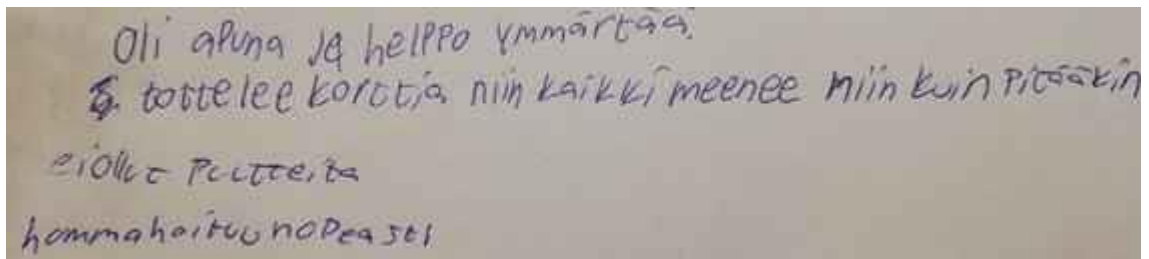 Oli apuna ja helppo ymmärtää.
tottelee korttia niin kaikki meenee niin kuin pitääkin
eiollut Puutteita
hommahoituu nopeasti